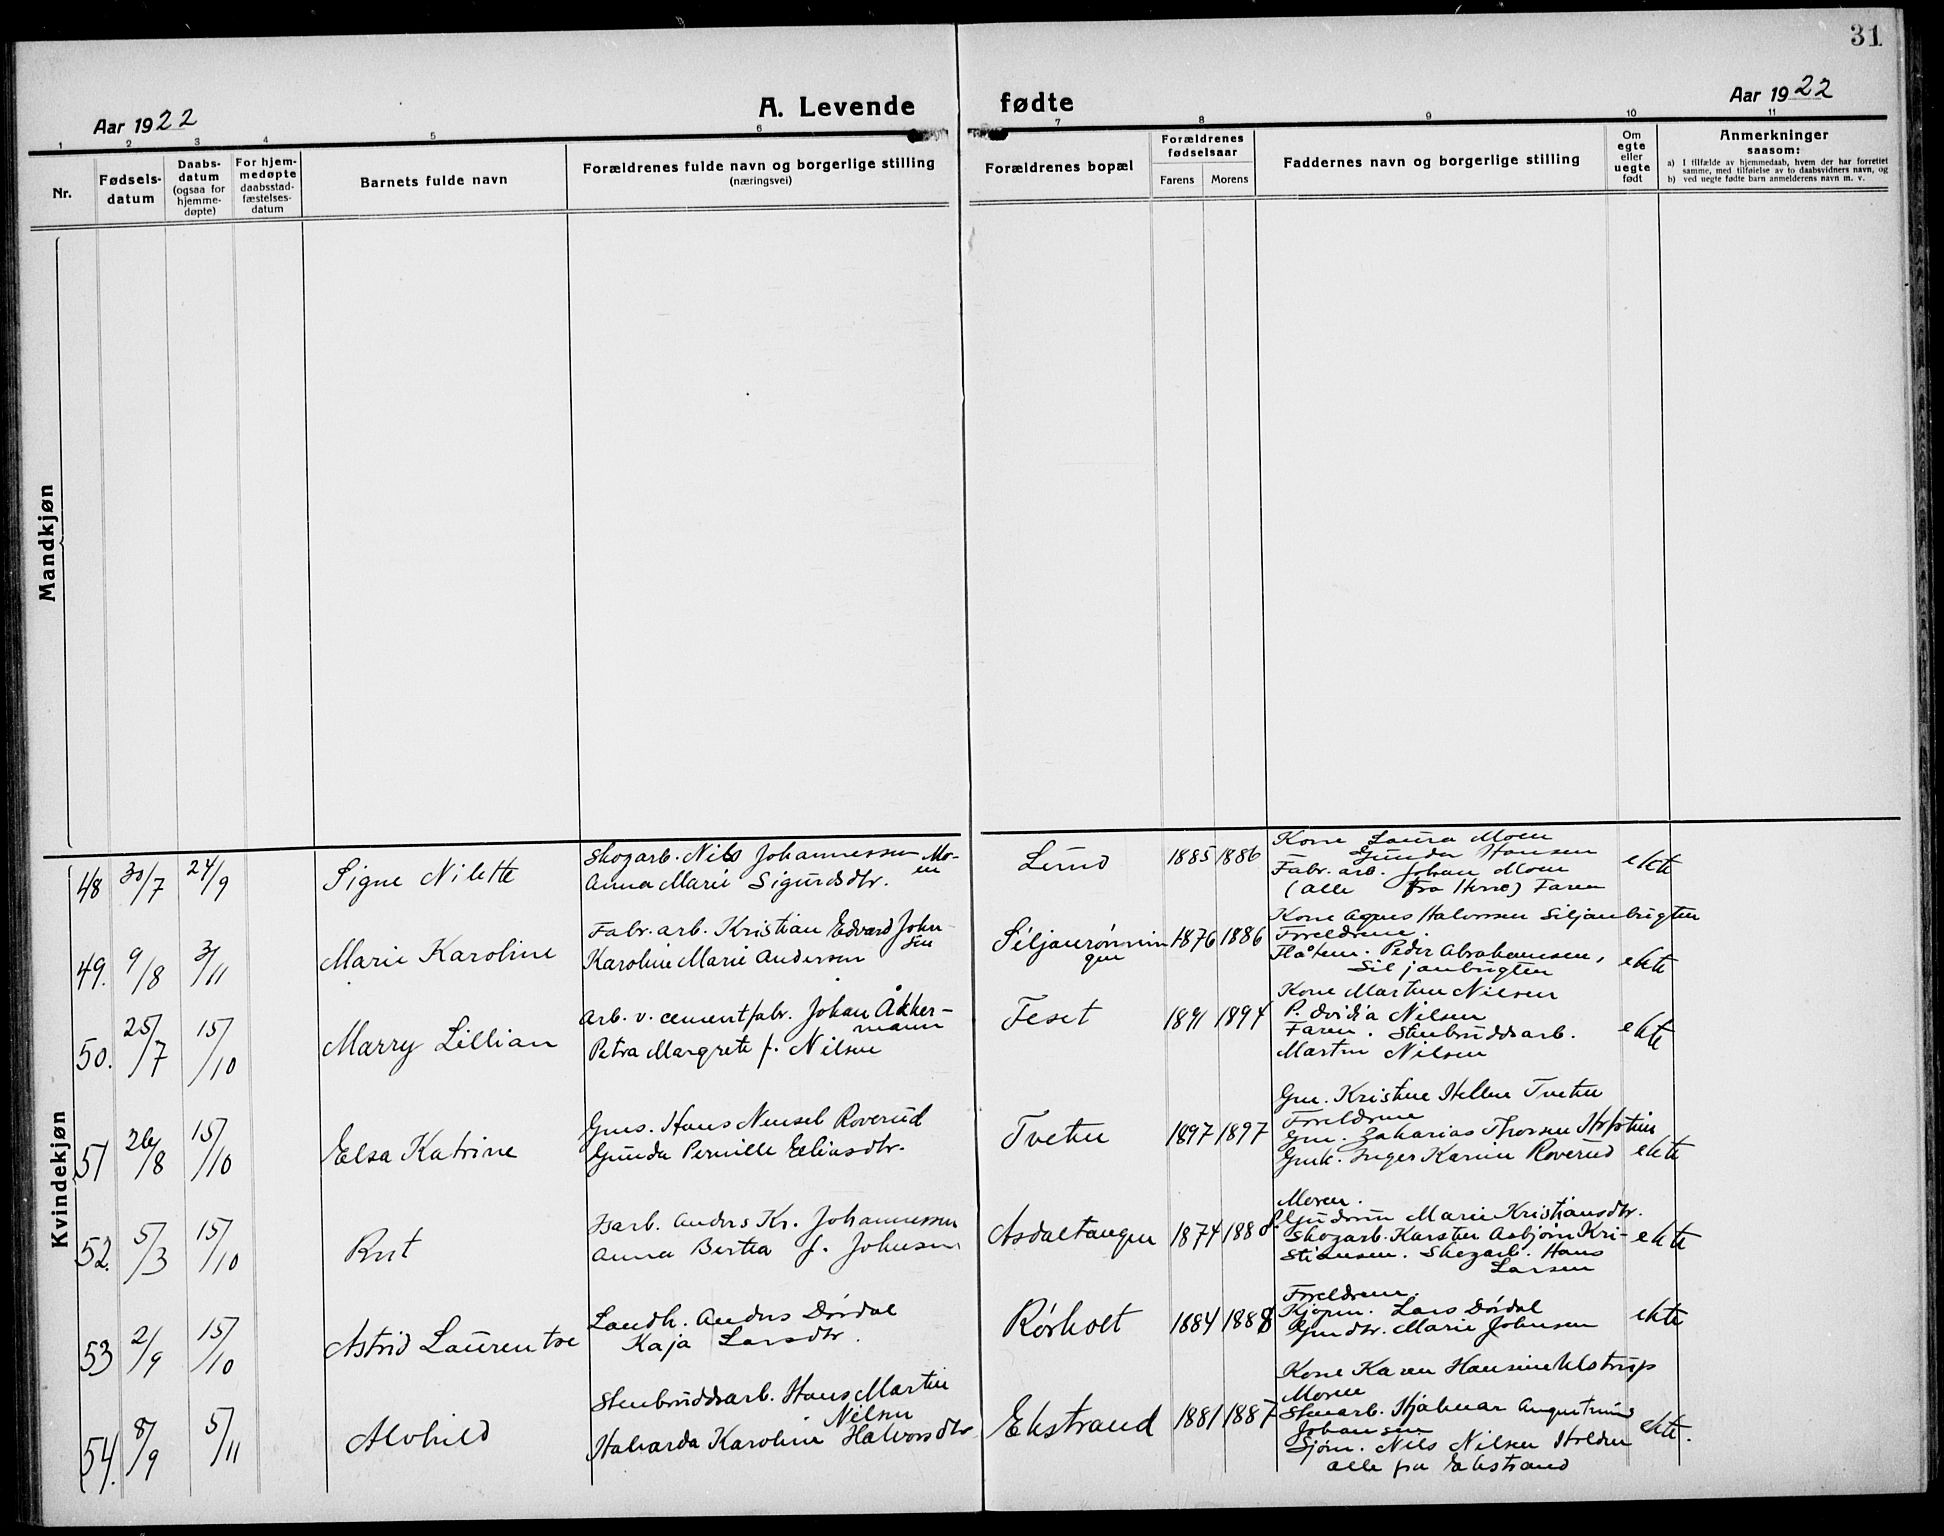 31
Aar 1922
A. Levende fødte
Aar 1922
1 2 3 4 5 6 7 8 9 10 11
Nr.
Fødsels-
datum
Daabs-
datum
(ogsaa for
hjemme-
døpte)
For hjem-
medøpte
daabsstad-
fæstelses-
datum
Barnets fulde navn
Forældrenes fulde navn og borgerlige stilling
(næringsvei)
Forældrenes bopæl
Forældrenes
fødselsaar
Farens Morens
Faddernes navn og borgerlige stilling
Om
egte
eller
uegte
født
Anmerkninger
saasom:
a) I tilfælde av hjemmedaab, hvem der har forrettet
samme, med tilføielse av to daabsvidners navn, og
b) ved uegte fødte barn anmelderens navn m. v.
Mandkjøn
Kvindekjøn
48 30/7 24/9 Signe Nilette
Skogarb. Nils Johannessen Mo-
en
Anna Marie Sigurdsdtr.
Lund 1885 1886
Kone Laura Moen
Gunda Hansen
Fabr. arb. Johan Moen
(alle fra Herre) Faren
ekte
49. 9/8 3/11 Marie Karoline
Fabr. arb. Kristian Edvard John-
sen
Karoline Marie Andersen
Siljanrønnin
gen
1876 1886
Kone Agnes Halvorsen Siljanbugten
Foreldrene.
Flåtem. Peder Abrahamsen,
Siljanbugten
ekte
50. 25/7 15/10 Marry Lillian
Arb. v. cementfabr. Johan Åkker-
mann
Petra Margrete f. Nilsen
Feset 1891 1894
Kone Martine Nilsen
P. Nilsen
Faren. Stenbruddsarb.
Martin Nilsen
ekte
51 26/8 15/10 Elsa Katrine
Gms. Hans Roverud
Gunda Pernille Eliasdtr.
Tveten 1897 1897
Gm. Kristine Tveten
Foreldrene
Gm. Zakarias Thorsen
Gmk. Inger Karine Roverud
ekte
52. 5/3 15/10 Rut
Isarb. Anders Kr. Johannessen
Anna Bertea f. Johnsen
Asdaltangen 1874 1880
Moren.
Gudrun Marie Kristiansdtr.
Skogarb. Karsten Asbjørn Kri-
stiansen. Skogarb. Hans
Larsen
ekte
53 2/9 15/10 Astrid Laurentse
Landh. Anders Dørdal
Kaja Larsdtr.
Rørholt 1884 1888
Foreldrene.
Kjøpm. Lars Dørdal
Gmdtr. Marie Johnsen
ekte
54. 8/9 5/11 Alvhild
Stenbruddsarb. Hans Martin
Nilsen
Halvarda Karoline Halvorsdtr
Ekstrand 1881 1887
Kone Karen Hansine Ulstrup
Moren
Stenarb. Hjalmar
Johansen
Sjøm. Nils Nilsen Holden
alle fra Ekstrand
ekte.